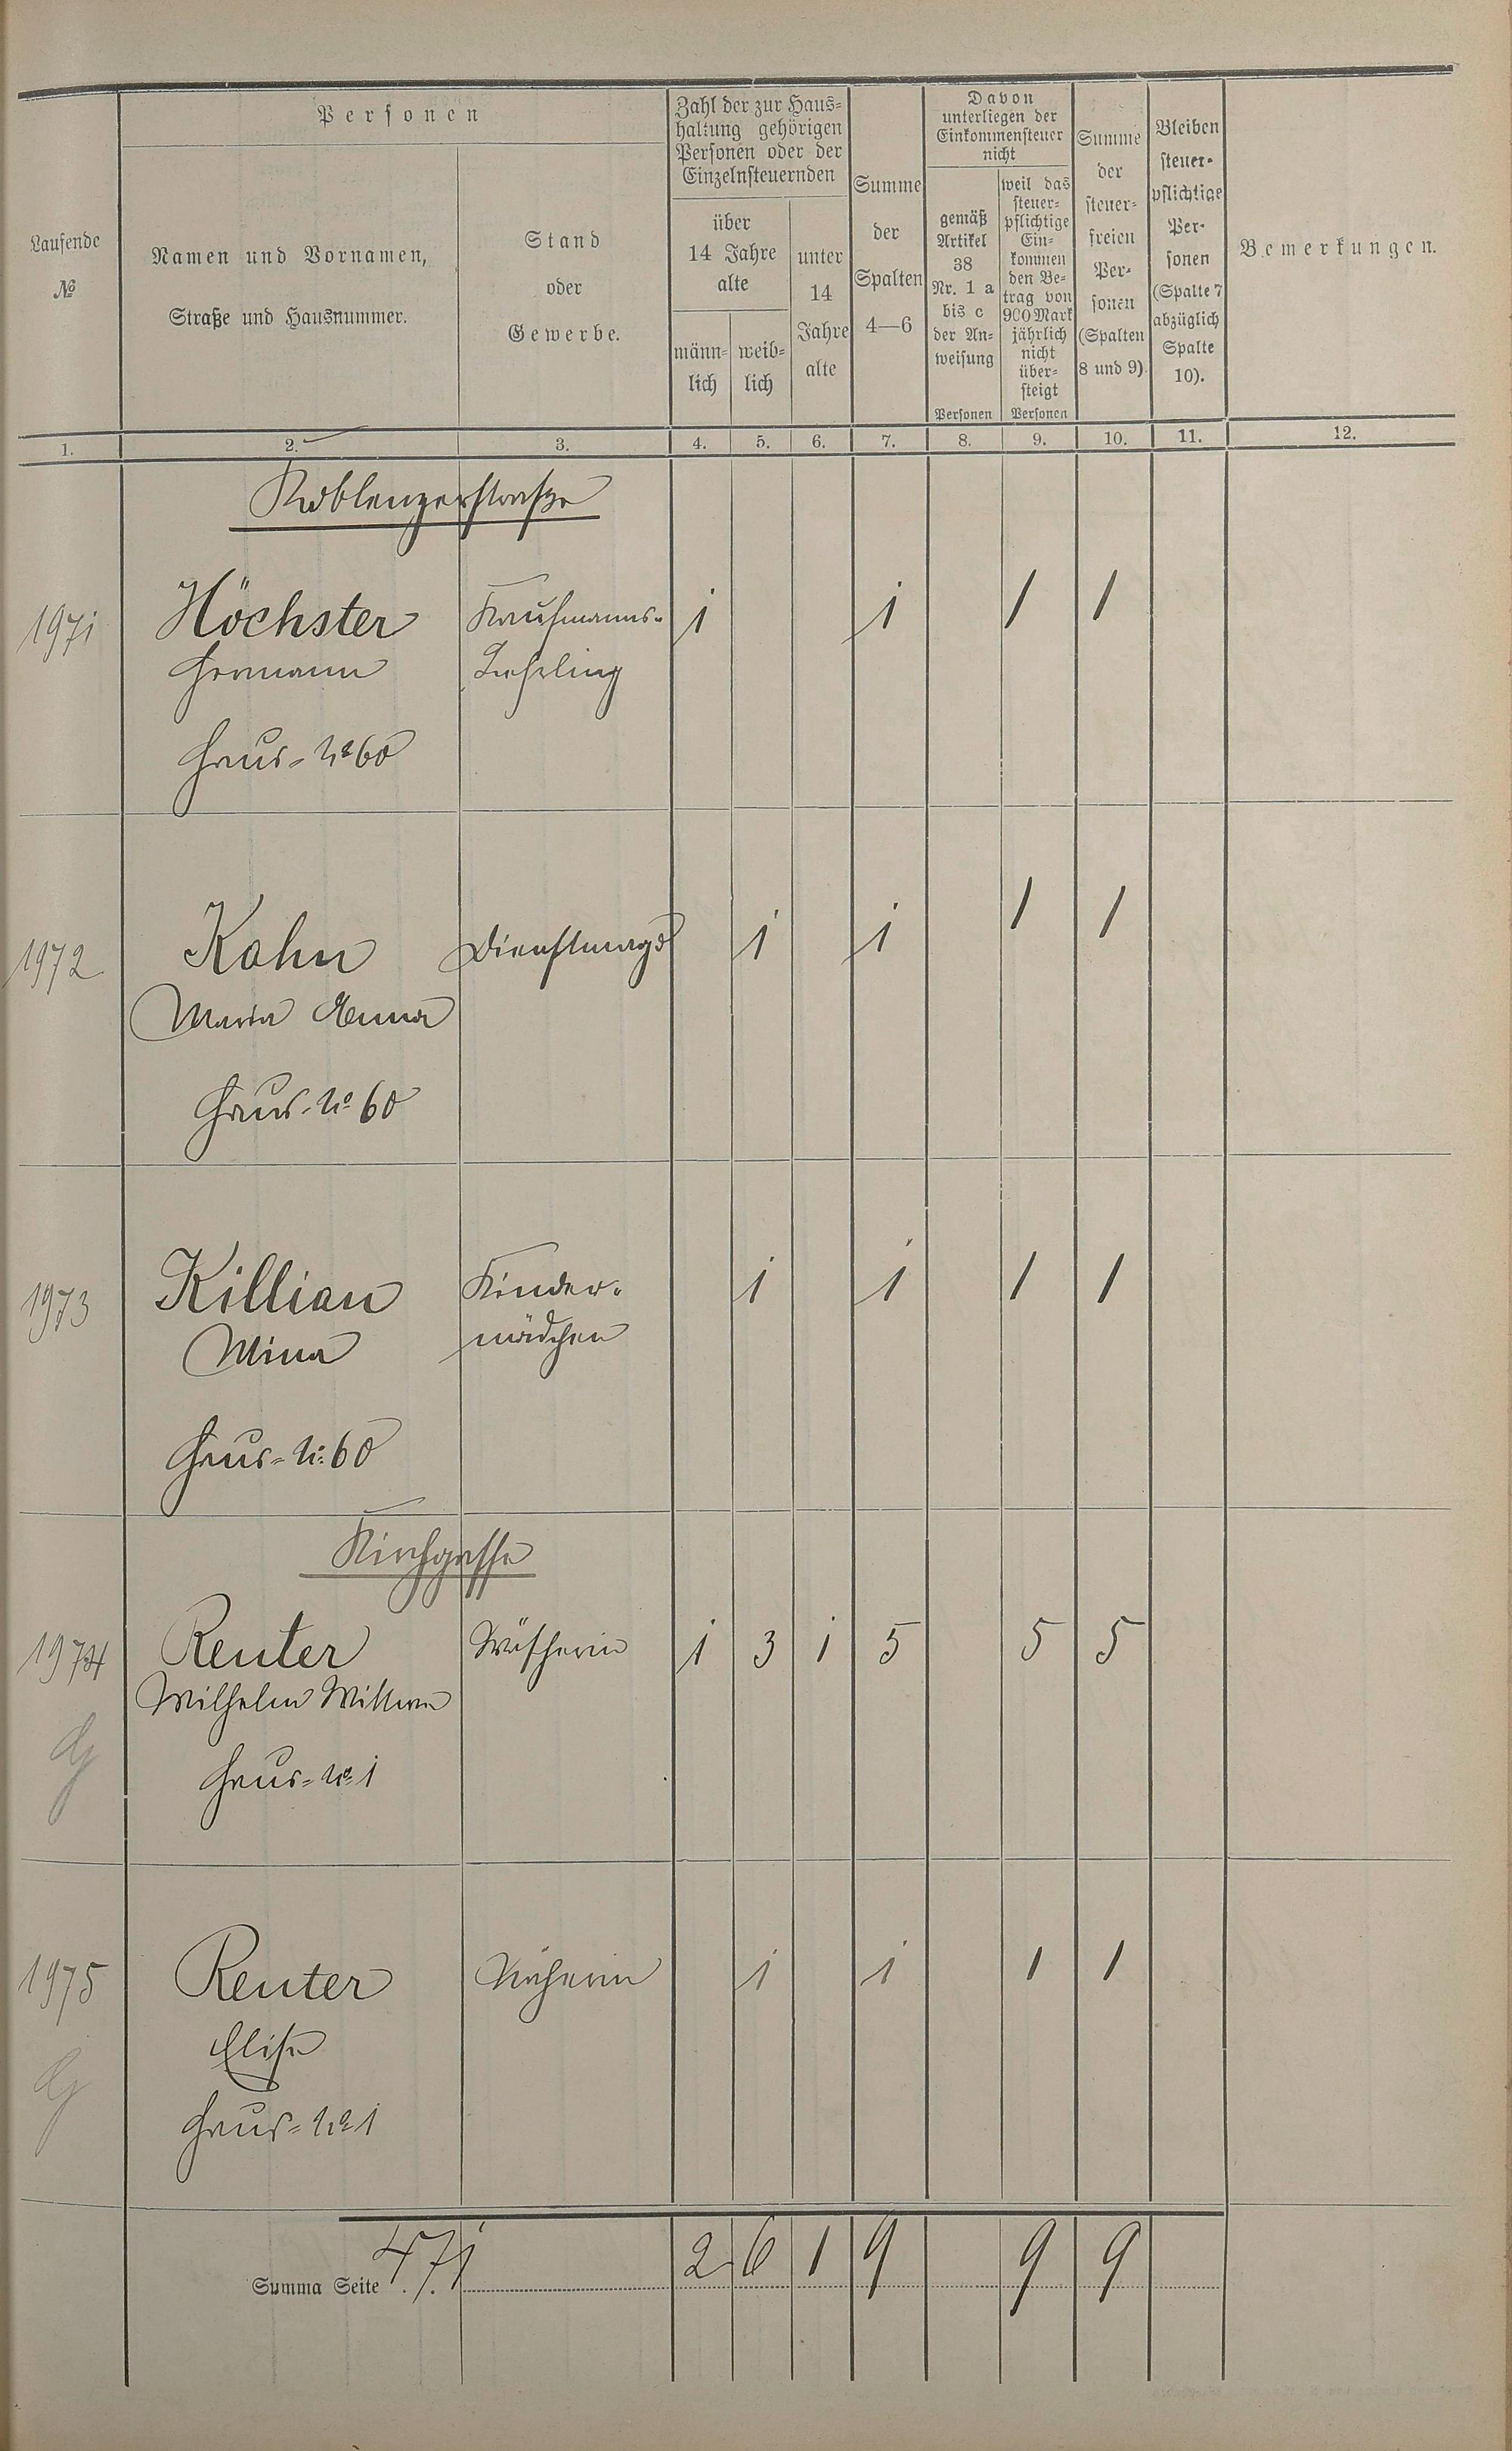 Laufende
№
Personen
Namen und Vornamen,
Straße und Hausnummer.
Stand
oder
Gewerbe.
Zahl der zur Haus-
haltung gehörigen
Personen oder der
Einzelnsteuernden
über
14 Jahre
alte
männ-
lich
weib-
lich
unter
14
Jahre
alte
Summe
der
Spalten
4—6
Davon
unterliegen der
Einkommensteuer
nicht
gemäß
Artikel
38
Nr. 1 a
bis c
der An-
weisung
Personen
weil das
steuer-
pflichtige
Ein-
kommen
den Be-
trag von
900 Mark
jährlich
nicht
über-
steigt
Personen
Summe
der
steuer-
freien
Per-
sonen
(Spalten
8 und 9).
Bleiben
steuer-
pflichtige
Per-
sonen
(Spalte 7
abzüglich
Spalte
10).
Bemerkungen.
1. 2. 3. 4. 5. 6. 7. 8. 9. 10. 11. 12.
Koblenzerstraße
1971 Höchster Kaufmanns- 1 1 1 1
Hermann Lehrling
Haus-No 60
1972 Kahn Dienstmagd 1 1 1 1
Maria Anna
Haus-No 60
1973 Killian Kinder- 1 1 1 1
Mina mädchen
Haus-No 60
Kirchgasse
1974 Reuter Wäscherin 1 3 1 5 5 5
Wilhelm Wittwe
Haus-No 1
1975 Reuter Näherin 1 1 1 1
Elise
Haus-No 1
Summa Seite 471 2 6 1 9 9 9